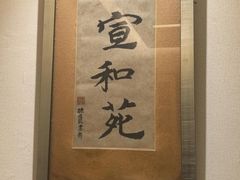 宣和苑